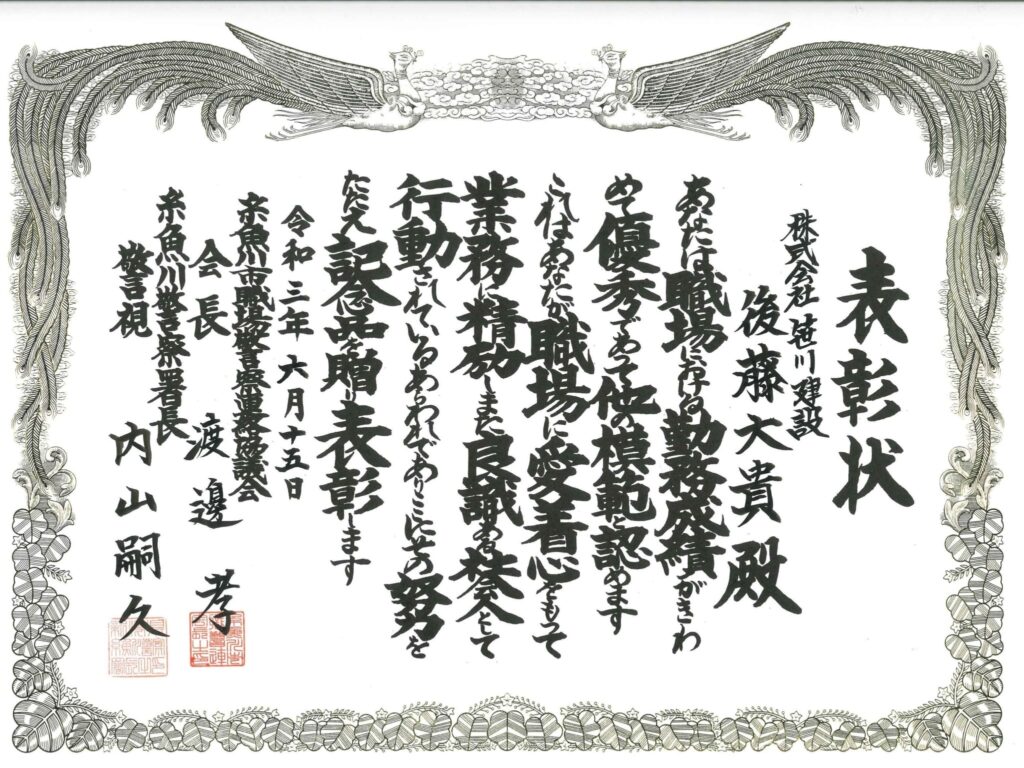 表彰状
株式会社 笹川建設
後藤大貴殿
あなたは職場における勤務成績がきわ
めて優秀であって他の模範と認めます
これはあなたが職場に愛着心をもって
業務に精励しまた良識ある社会人として
行動されているあらわれでありここにその努力を
たたえ記念品を贈り表彰します
令和三年六月十五日
糸魚川市職場警察連絡協議会
会長 渡邊 孝
糸魚川警察署長
警視 内山嗣久